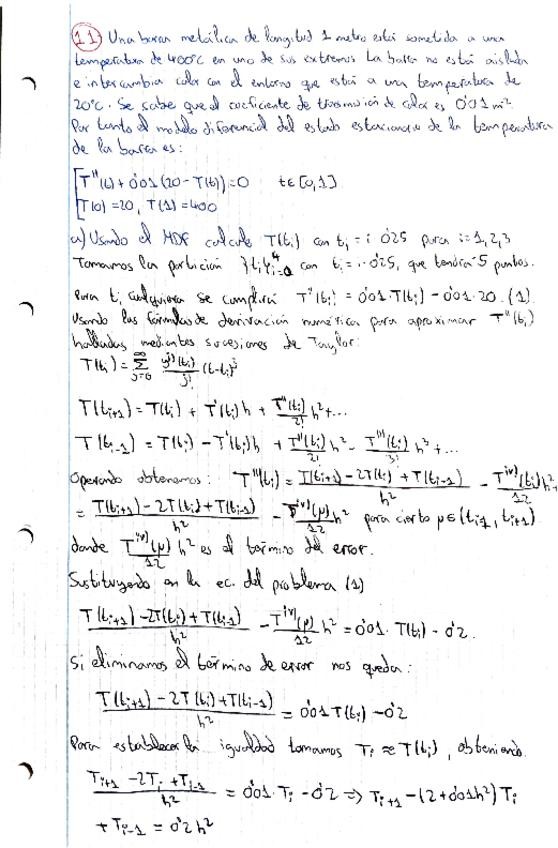 1.1 Una barra metálica de longitud 1 metro está sometida a una
temperatura de 400°C en uno de sus extremos. La barra no está aislada
e intercambia calor con el entorno que está a una temperatura de
20°C. Se sabe que el coeficiente de transmisión de calor es 0'01 m⁻².
Por tanto el modelo diferencial del estado estacionario de la temperatura
de la barra es:
T''(t) + 0'01 (20 - T(t)) = 0 t ∈ [0,1]
T(0) = 20, T(1) = 400
a) Usando el MDF calcule T(tᵢ) con tᵢ = i·0'25 para i = 1,2,3
Tomamos la partición {tᵢ}⁴ᵢ₌₀ con tᵢ = i·0'25, que tendrá 5 puntos.
Para tᵢ cualquiera se cumplirá T''(tᵢ) = 0'01·T(tᵢ) - 0'01·20. (1)
Usando las fórmulas de derivación numérica para aproximar T''(tᵢ)
halladas mediantes sucesiones de Taylor:
T(tᵢ) = Σ^∞_{j=0} y^{j)}(tᵢ)/j! (t-tᵢ)^j
T(tᵢ₊₁) = T(tᵢ) + T'(tᵢ)h + T''(tᵢ)/2! h² + ...
T(tᵢ₋₁) = T(tᵢ) - T'(tᵢ)h + T''(tᵢ)/2! h² - T'''(tᵢ)/3! h³ + ...
Operando obtenemos: T''(tᵢ) = (T(tᵢ₊₁) - 2T(tᵢ) + T(tᵢ₋₁))/h² - T^{iv)}(tᵢ)/12 h²
= (T(tᵢ₊₁) - 2T(tᵢ) + T(tᵢ₋₁))/h² - T^{iv)}(μ)/12 h² para cierto μ ∈ (tᵢ₋₁, tᵢ₊₁)
donde T^{iv)}(μ)/12 h² es el término del error.
Sustituyendo en la ec. del problema (1)
(T(tᵢ₊₁) - 2T(tᵢ) + T(tᵢ₋₁))/h² - T^{iv)}(μ)/12 h² = 0'01·T(tᵢ) - 0'2.
Si eliminamos el término de error nos queda:
(T(tᵢ₊₁) - 2T(tᵢ) + T(tᵢ₋₁))/h² = 0'01 T(tᵢ) - 0'2
Para establecer la igualdad tomamos Tᵢ ≈ T(tᵢ), obteniendo.
(Tᵢ₊₁ - 2Tᵢ + Tᵢ₋₁)/h² = 0'01·Tᵢ - 0'2 ⇒ Tᵢ₊₁ - (2 + 0'01h²) Tᵢ
+ Tᵢ₋₁ = 0'2 h²